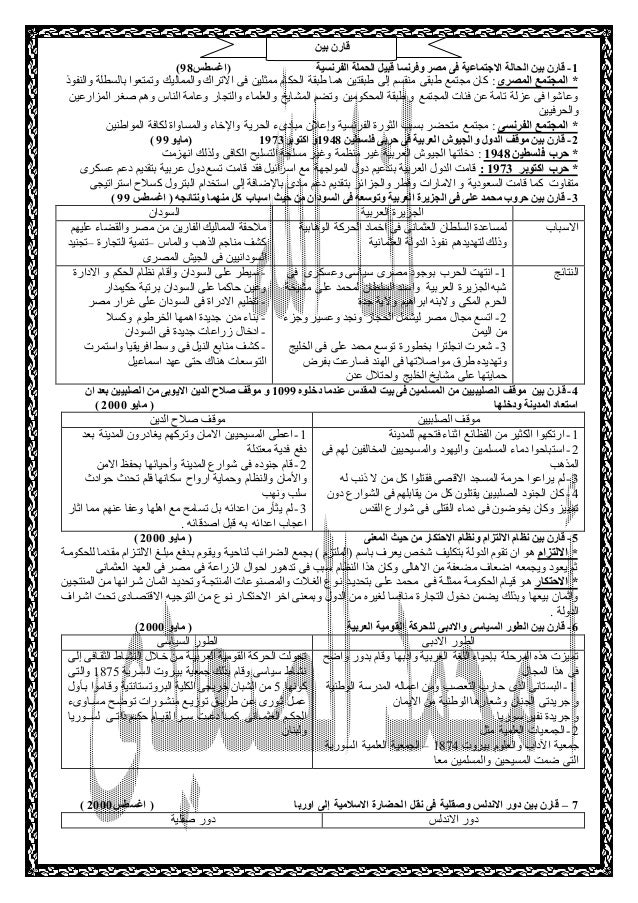 قارن بين
1- قارن بين الحالة الاجتماعية فى مصر وفرنسا قبيل الحملة الفرنسية (اغسطس98)
* المجتمع المصرى : كان مجتمع طبقى منقسم إلى طبقتين هما طبقة الحكام ممثلين فى الاتراك والمماليك وتمتعوا بالسلطة والنفوذ
وعاشوا فى عزلة تامة عن فئات المجتمع و طبقة المحكومين وتضم المشايخ والعلماء والتجار وعامة الناس وهم صغر المزارعين
والحرفيين
* المجتمع الفرنسي : مجتمع متحضر بسبب الثورة الفرنسية وإعلان مبادىء الحرية والإخاء والمساواة لكافة المواطنين
2- قارن بين موقف الدول و الجيوش العربية فى حربى فلسطين 1948و اكتوبر 1973 (مايو 99 )
* حرب فلسطين 1948 : دخلتها الجيوش العربية غير منظمة وغير مسلحة التسليح الكافى ولذلك انهزمت
* حرب اكتوبر 1973 : قامت الدول العربية بتدعيم دول المواجهة مع اسرائيل فقد قامت تسع دول عربية بتقديم دعم عسكرى
متفاوت كما قامت السعودية و الامارات وقطر والجزائر بتقديم دعم مادى بالإضافة إلى استخدام البترول كسلاح استراتيجى
3- قارن بين حروب محمد على فى الجزيرة العربية وتوسعه فى السودان من حيث اسباب كل منهما ونتائجه ( اغسطس 99 )
الجزيرة العربية السودان
الاسباب لمساعدة السلطان العثمانى فى اخماد الحركة الوهابية ملاحقة المماليك الفارين من مصر والقضاء عليهم
وذلك لتهديدهم نفوذ الدولة العثمانية كشف مناجم الذهب والماس –تنمية التجارة –تجنيد
السودانيين فى الجيش المصرى
النتائج 1- انتهت الحرب بوجود مصرى سياسى وعسكرى فى - سيطر على السودان وأقام نظام الحكم و الادارة
شبه الجزيرة العربية واسند السلطان لمحمد على مشيخة وعين حاكما على السودان برتبة حكيمدار
الحرم المكى ولابنه ابراهيم ولاية جدة - تنظيم الادراة فى السودان على غرار مصر
2- اتسع مجال مصر ليشمل الحجاز ونجد وعسير وجزء - بناء مدن جديدة اهمها الخرطوم وكسلا
من اليمن - ادخال زراعات جديدة فى السودان
3- شعرت انجلترا بخطورة توسع محمد على فى الخليج - كشف منابع النيل فى وسط افريقيا واستمرت
وتهديده طرق مواصلاتها فى الهند فسارعت بفرض التوسعات هناك حتى عهد اسماعيل
حمايتها على مشايخ الخليج واحتلال عدن
4- قارن بين موقف الصليبيين من المسلمين فى بيت المقدس عندما دخلوه 1099 و موقف صلاح الدين الايوبى من الصليبيين بعد ان
استعاد المدينة ودخلها ( مايو 2000 )
موقف الصليبيين موقف صلاح الدين
1- ارتكبوا الكثير من الفظائع اثناء فتحهم للمدينة 1- اعطى المسيحيين الامان وتركهم يغادرون المدينة بعد
2- استباحوا دماء المسلمين واليهود والمسيحيين المخالفين لهم فى دفع فدية معتدلة
المذهب 2- قام جنوده فى شوارع المدينة وأحيائها بحفظ الامن
3- لم يراعوا حرمة المسجد الاقصى فقتلوا كل من لا ذنب له والأمان والنظام وحماية ارواح سكانها فلم تحدث حوادث
4- كان الجنود الصليبين يقتلون كل من يقابلهم فى الشوارع دون سلب ونهب
تمييز وكان يخوضون فى دماء القتلى فى شوارع القدس 3- لم يثأر من اعدائه بل تسامح مع اهلها وعفا عنهم مما اثار
اعجاب اعدائه به قبل اصدقائه .
5- قارن بين نظام الالتزام ونظام الاحتكار من حيث المعنى ( مايو 2000 )
* الالتزام هو ان تقوم الدولة بتكليف شخص يعرف باسم (الملتزم ) بجمع الضرائب لناحية ويقوم بدفع مبلغ الالتزام مقدما للحكومة
ثم يعود ويجمعه اضعاف مضعفة من الاهالى وكان هذا النظام سبب فى تدهور احوال الزراعة فى مصر فى العهد العثمانى
* الاحتكار هو قيام الحكومة ممثلة فى محمد على بتحديد نوع الغلات والمصنوعات المنتجة وتحديد اثمان شرائها من المنتجين
وأثمان بيعها وبذلك يضمن دخول التجارة منافسا لغيره من الدول وبمعنى اخر الاحتكار نوع من التوجيه الاقتصادى تحت اشراف
الدولة .
6- قارن بين الطور السياسى والادبى للحركة القومية العربية ( مايو 2000)
الطور الادبى الطور السياسى
تميزت هذه المرحلة بإحياء اللغة العربية وادبها وقام بدور واضح تحولت الحركة القومية العربية من خلال النشاط الثقافى إلى
فى هذا المجال نشاط سياسى وقام بذلك جمعية بيروت السرية 1875 والتى
1- البستانى الذى حارب التعصب ومن اعماله المدرسة الوطنية كونها 5 من الشبان خريجى الكلية البروتستانتية وقاموا بأول
و جريدتى الجنان وشعارها الوطنية من الايمان عمل ثورى عن طريق توزيع منشورات توضح مساوىء
و جريدة نفير سوريا الحكم العثمانى كما دعت سرا لقيام حكم ذاتى لسوريا
2- الجمعيات العلمية مثل ولبنان
جمعية الآداب والعلوم بيروت 1874 – الجمعية العلمية السورية
التى ضمت المسيحين والمسلمين معا
7 – قارن بين دور الاندلس وصقلية فى نقل الحضارة الاسلامية إلى اوربا ( اغسطس2000 )
دور الاندلس دور صقلية